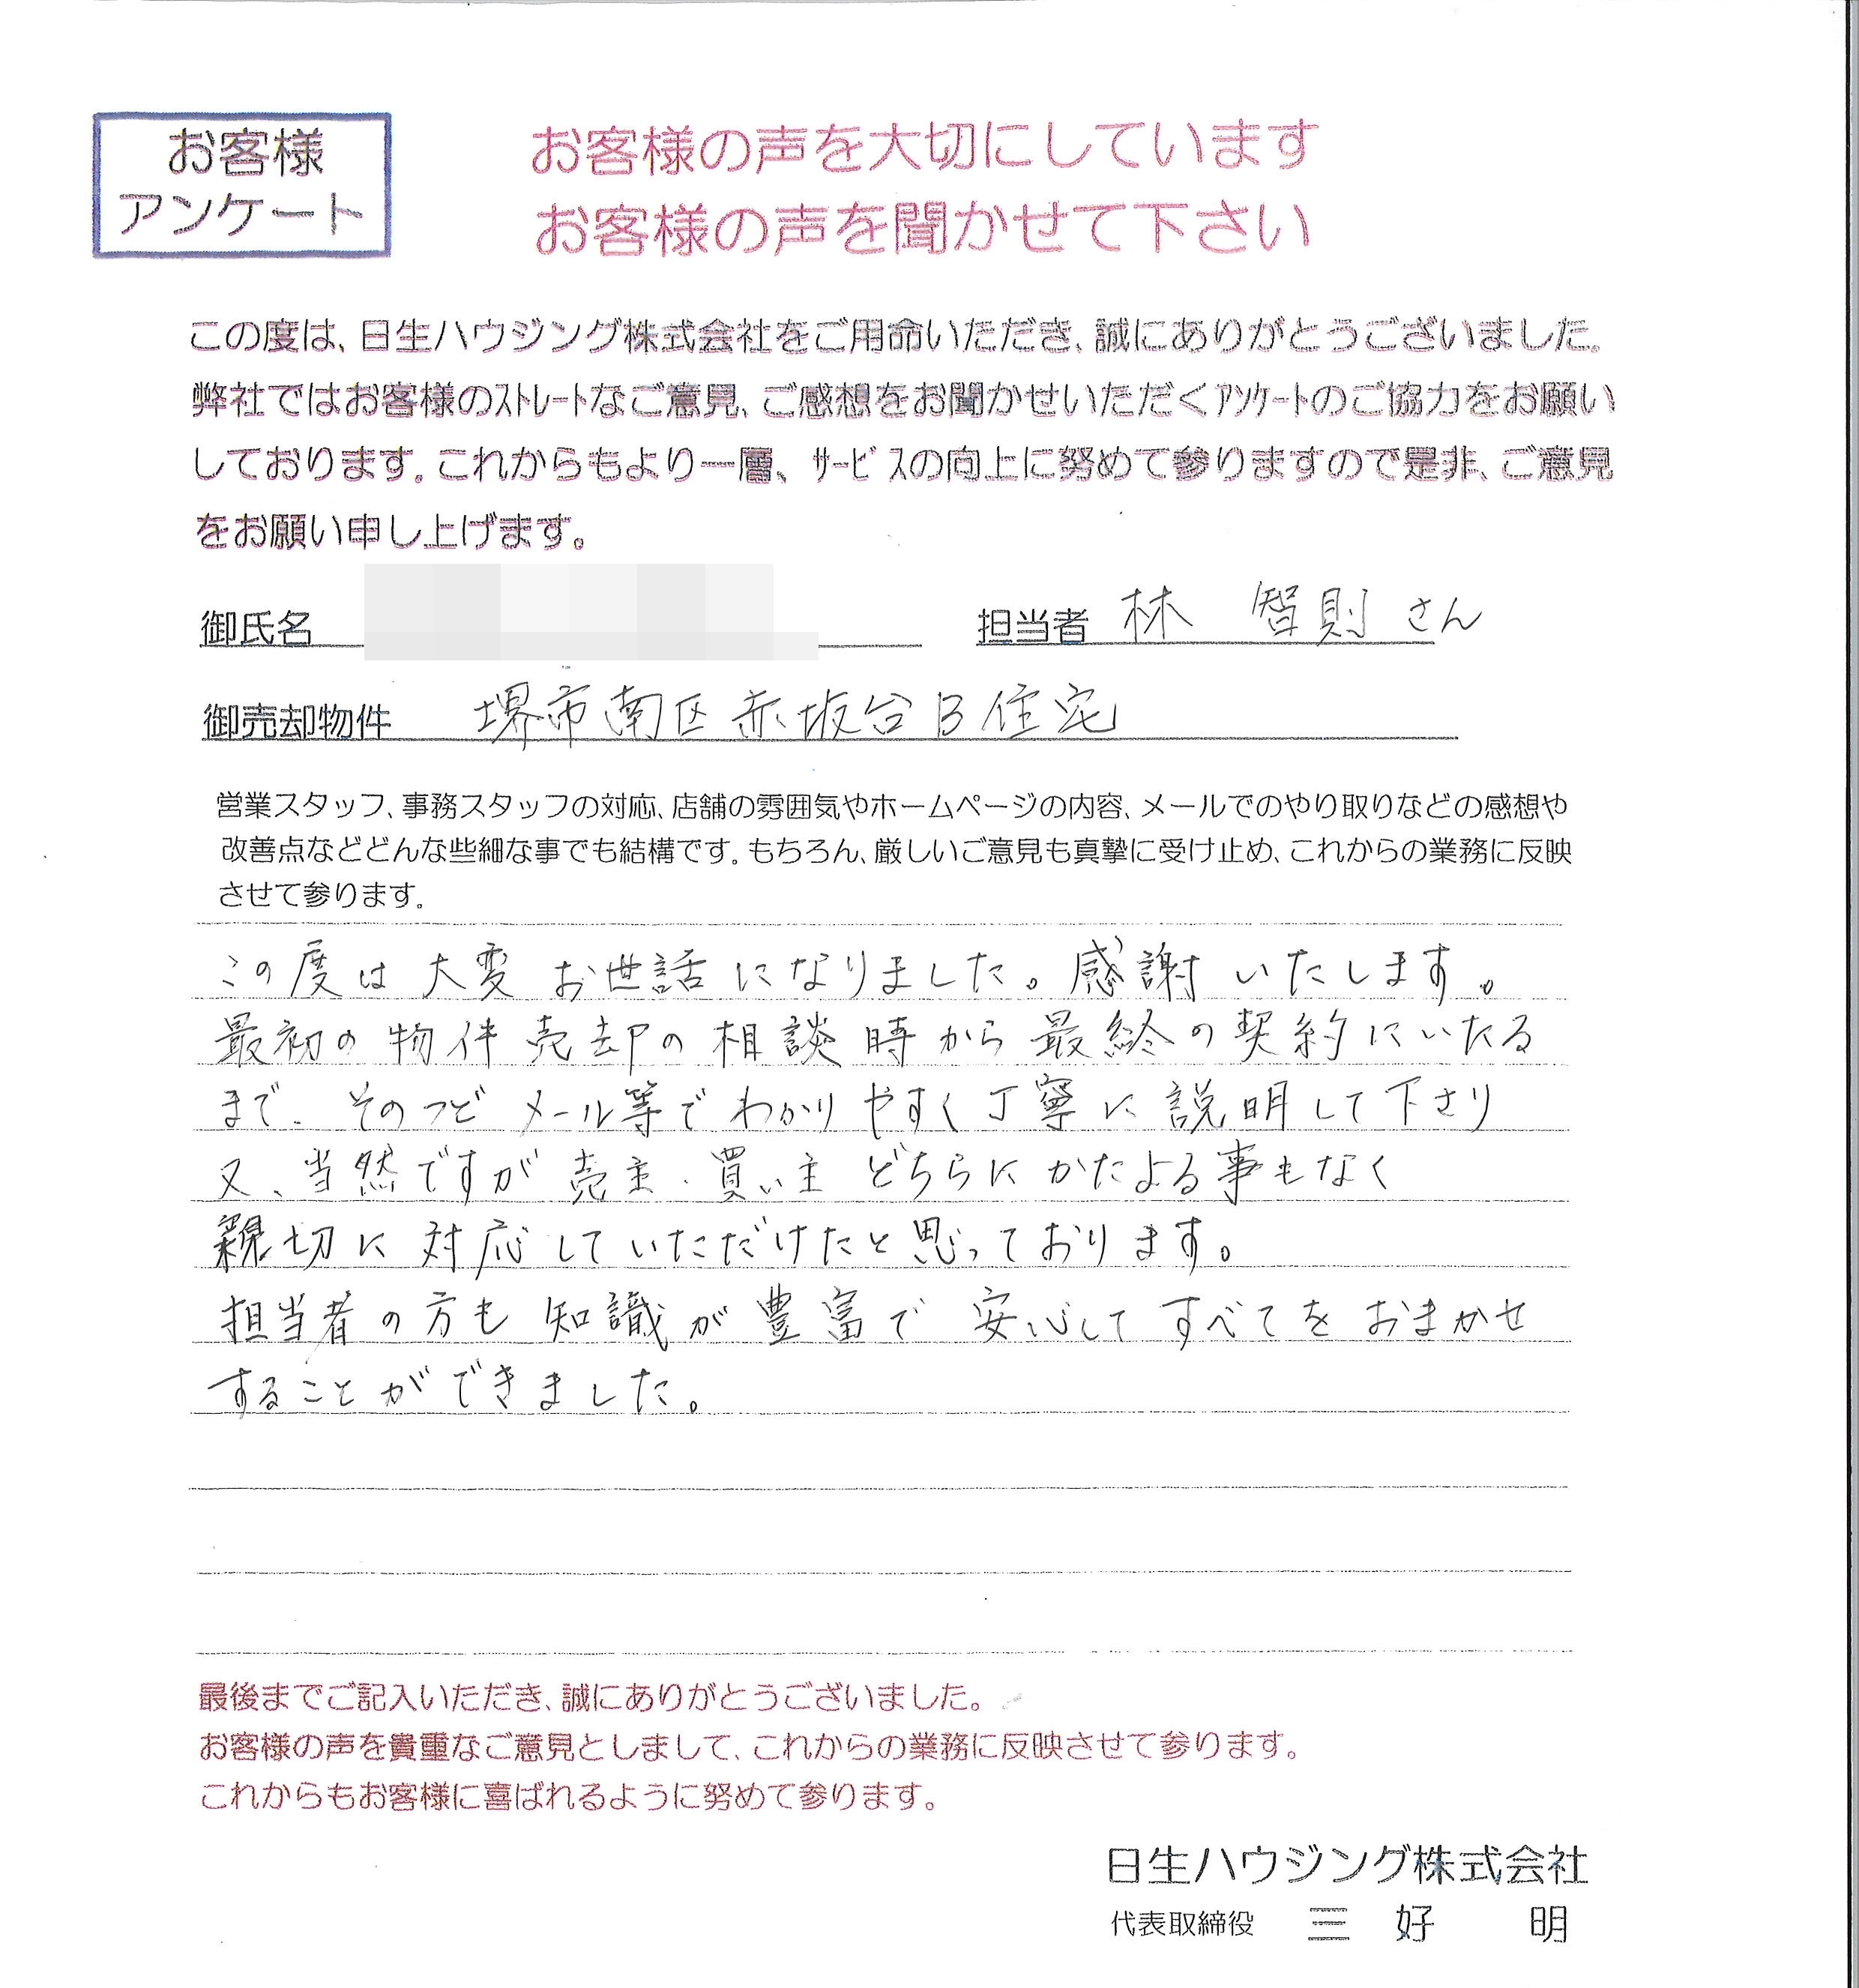 お客様
アンケート
お客様の声を大切にしています
お客様の声を聞かせて下さい
この度は、日生ハウジング株式会社をご用命いただき、誠にありがとうございました。
弊社ではお客様のｽﾄﾚｰﾄなご意見、ご感想をお聞かせいただくｱﾝｹｰﾄのご協力をお願い
しております。これからもより一層、ｻｰﾋﾞｽの向上に努めて参りますので是非、ご意見
をお願い申し上げます。
御氏名
担当者 林 智則さん
御売却物件 堺市南区赤坂台B住宅
営業スタッフ、事務スタッフの対応、店舗の雰囲気やホームページの内容、メールでのやり取りなどの感想や
改善点などどんな些細な事でも結構です。もちろん、厳しいご意見も真摯に受け止め、これからの業務に反映
させて参ります。
この度は大変お世話になりました。感謝いたします。
最初の物件売却の相談時から最終の契約にいたる
まで、そのつどメール等でわかりやすく丁寧に説明して下さり
又、当然ですが売主・買い主どちらにかたよる事もなく
親切に対応していただけたと思っております。
担当者の方も知識が豊富で安心してすべてをおまかせ
することができました。
最後までご記入いただき、誠にありがとうございました。
お客様の声を貴重なご意見としまして、これからの業務に反映させて参ります。
これからもお客様に喜ばれるように努めて参ります。
日生ハウジング株式会社
代表取締役 三好 明